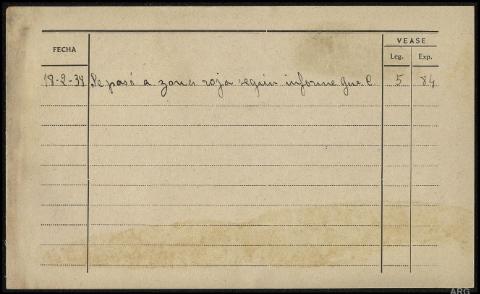 VEASE
FECHA Leg. Exp.
18-2-39 Se pasó a zona roja según informe 5 84
ARG